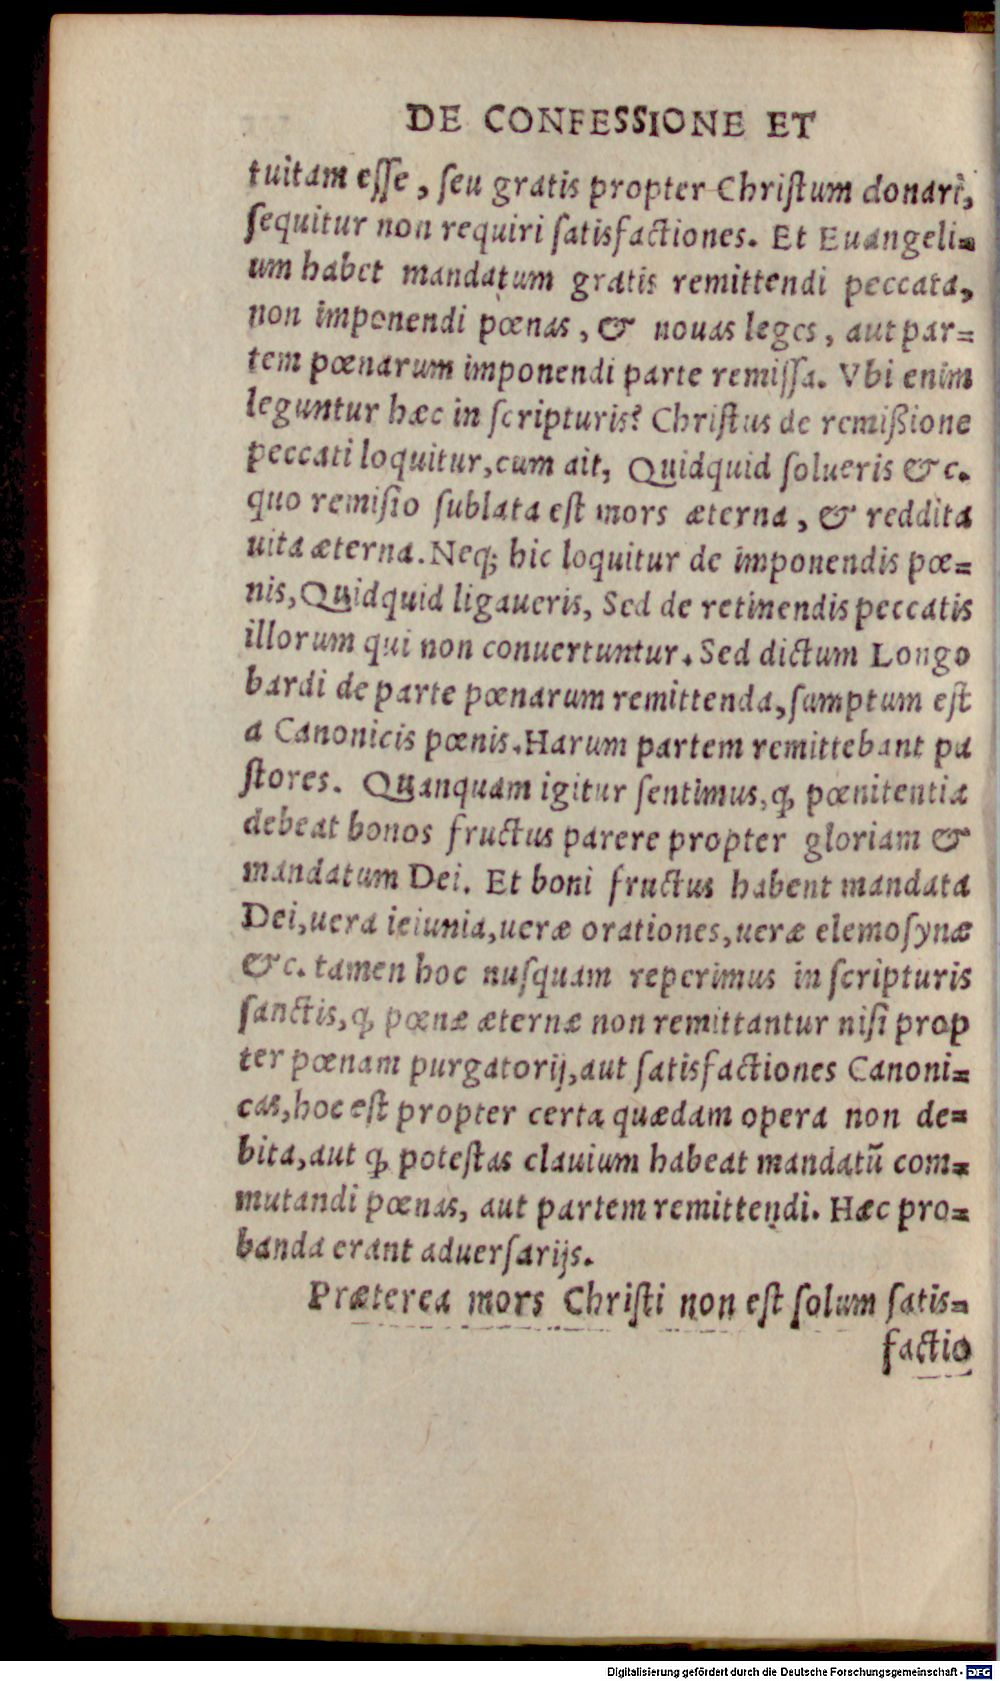 DE CONFESSIONE ET
tuitam esse, seu gratis propter Christum donari,
sequitur non requiri satisfactiones. Et Euangeli=
um habet mandatum gratis remittendi peccata,
non imponendi pœnas, & nouas leges, aut par=
tem pœnarum imponendi parte remissa. Vbi enim
leguntur hæc in scripturis? Christus de remißione
peccati loquitur, cum ait, Quidquid solueris &c.
quo remisio sublata est mors æterna, & reddita
uita æterna. Neq; hic loquitur de imponendis pœ=
nis, Quidquid ligaueris, Sed de retinendis peccatis
illorum qui non conuertuntur. Sed dictum Longo
bardi de parte pœnarum remittenda, sumptum est
a Canonicis pœnis. Harum partem remittebant pa
stores. Quanquam igitur sentimus, ꝙ pœnitentia
debeat bonos fructus parere propter gloriam &
mandatum Dei. Et boni fructus habent mandata
Dei, uera ieiunia, ueræ orationes, ueræ elemosynæ
&c. tamen hoc nusquam reperimus in scripturis
sanctis, ꝙ pœnæ æternæ non remittantur nisi prop
ter pœnam purgatorij, aut satisfactiones Canoni=
cas, hoc est propter certa quædam opera non de=
bita, aut ꝙ potestas clauium habeat mandatū com=
mutandi pœnas, aut partem remittendi. Hæc pro=
banda erant aduersarijs.
Præterea mors Christi non est solum satis=
factio
Digitalisierung gefördert durch die Deutsche Forschungsgemeinschaft - DFG